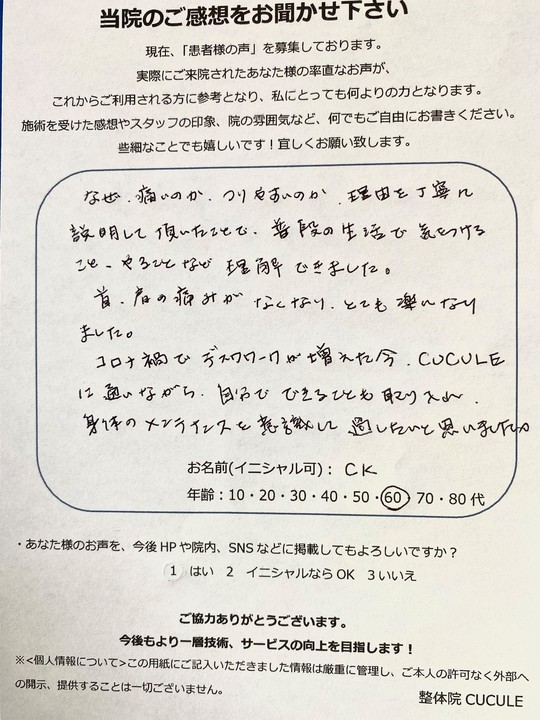 当院のご感想をお聞かせ下さい
現在、「患者様の声」を募集しております。
実際にご来院されたあなた様の率直なお声が、
これからご利用される方に参考となり、私にとっても何よりの力となります。
施術を受けた感想やスタッフの印象、院の雰囲気など、何でもご自由にお書きください。
些細なことでも嬉しいです！宜しくお願い致します。
なぜ、痛いのか、つりやすいのか、理由を丁寧に
説明して頂いたことで、普段の生活で気をつける
こと、やることなど理解できました。
首、肩の痛みがなくなり、とても楽になり
ました。
コロナ禍でデスクワークが増えた今、CUCULE
に通いながら、自分でできることも取り入れ、
身体のメンテナンスを意識して過したいと思いました。
お名前(イニシャル可)： CK
年齢：10・20・30・40・50・60・70・80 代
・あなた様のお声を、今後 HP や院内、SNS などに掲載してもよろしいですか？
1 はい 2 イニシャルなら OK 3 いいえ
ご協力ありがとうございます。
今後もより一層技術、サービスの向上を目指します！
※<個人情報について>この用紙にご記入いただきました情報は厳重に管理し、ご本人の許可なく外部へ
の開示、提供することは一切ございません。
整体院 CUCULE